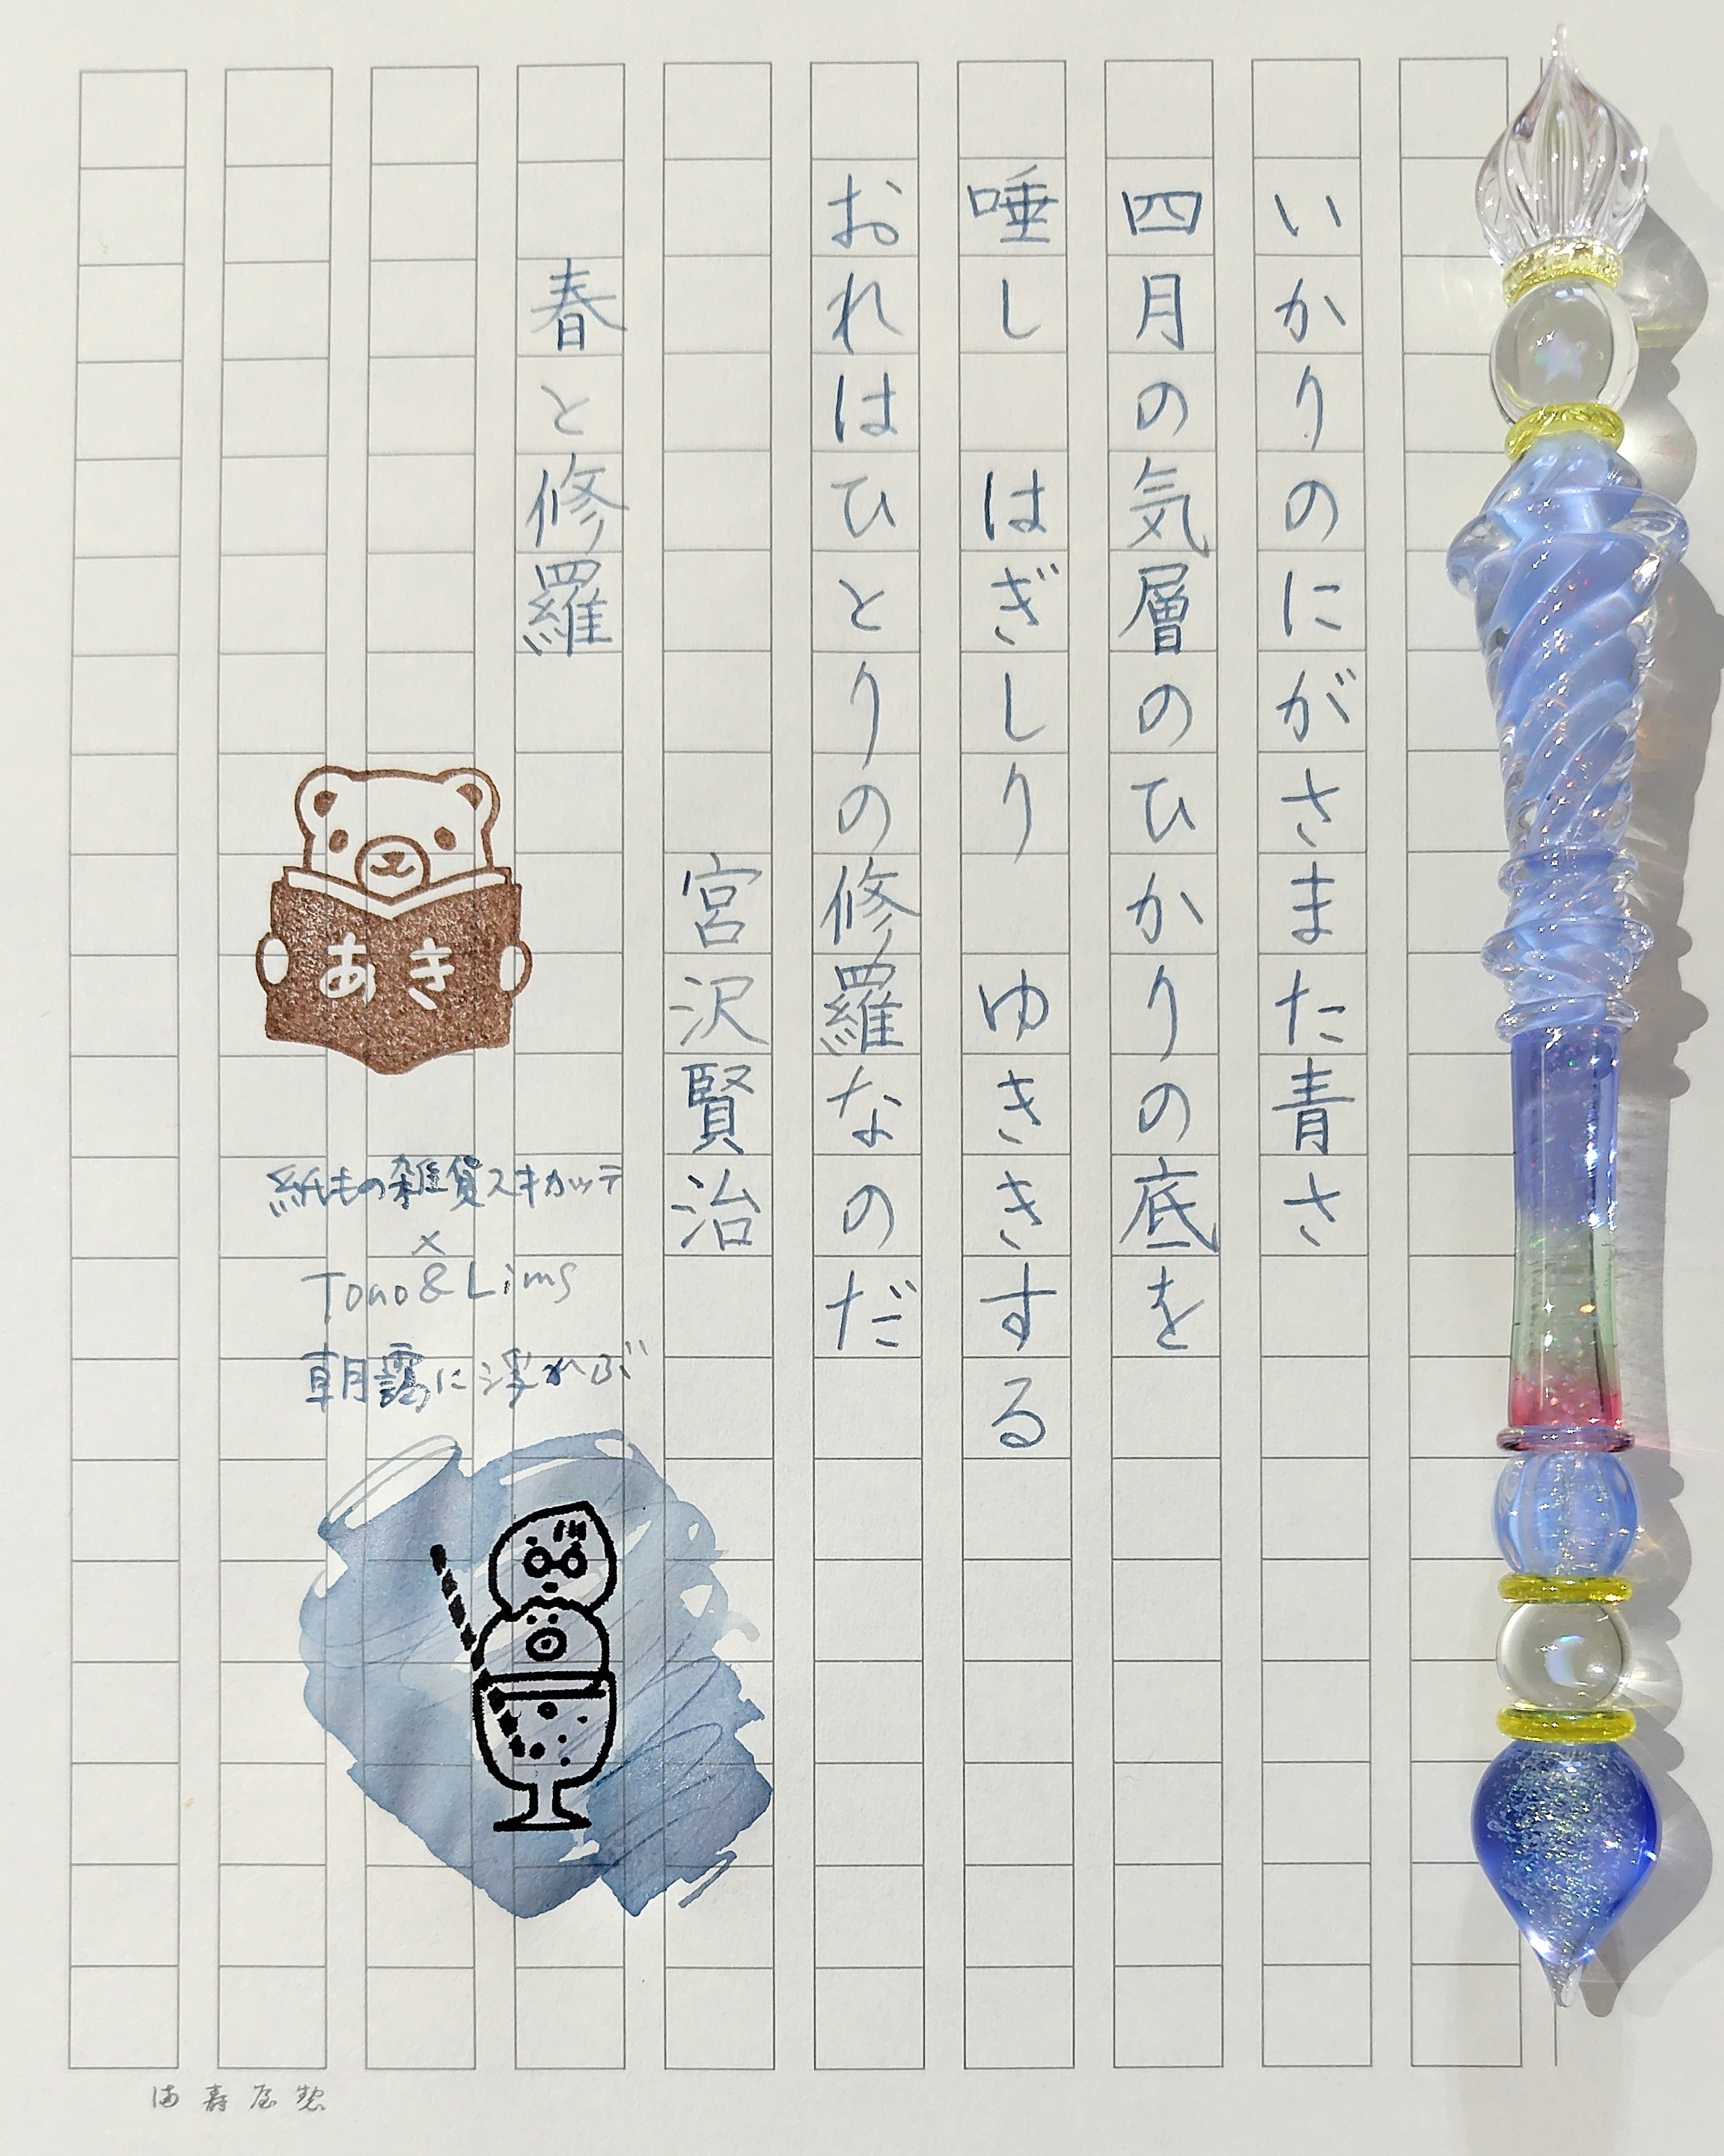 いかりのにがさまた青さ
四月の気層のひかりの底を
唾し　はぎしり　ゆききする
おれはひとりの修羅なのだ
宮沢賢治
春と修羅
あき
紙もの雑貨スキカッテ
×
Tono&Lims
朝靄に浮かぶ
満寿屋製